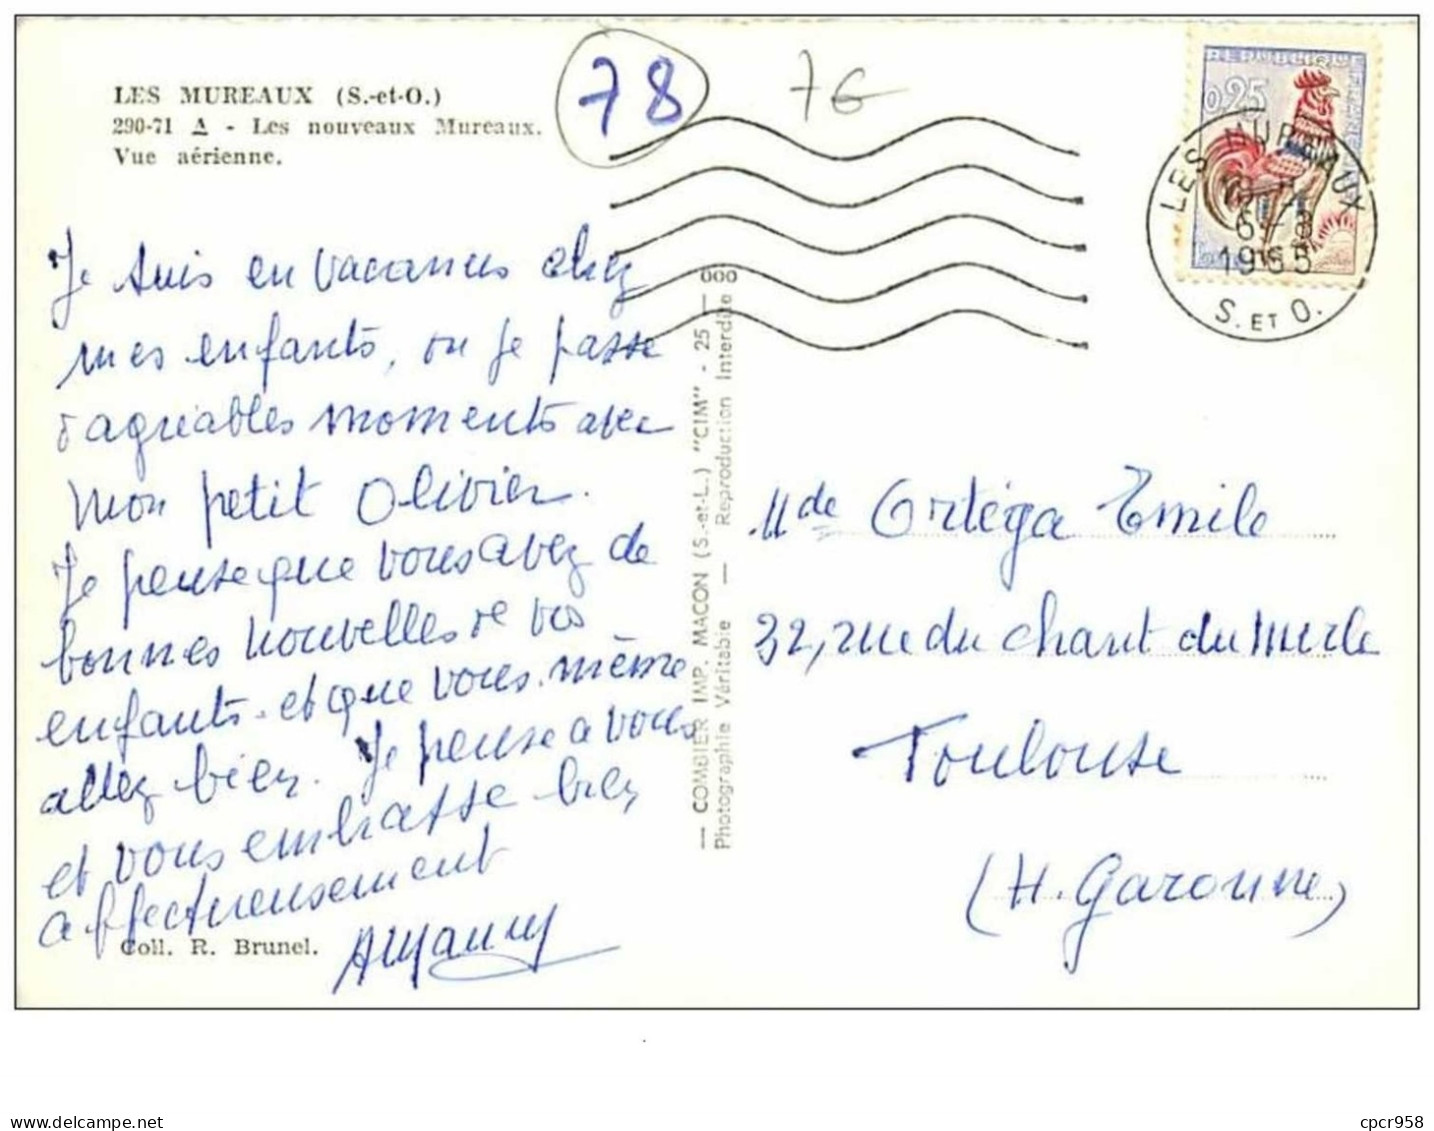 LES MUREAUX (S.-et-O.)
290-71 A - Les nouveaux Mureaux.
Vue aérienne.
78
76
REPUBLIQUE
0,25
LES MUREAUX
1965
S. ET O.
Je suis en vacances chez
mes enfants, ou je passe
d'agréables moments avec
mon petit Olivier.
Je pense que vous avez de
bonnes nouvelles de vos
enfants. et que vous. même
allez bien. Je pense a vous
et vous embrasse bien
affectueusement
Coll. R. Brunel.
— COMBIER IMP. MACON (S.-et-L.) "CIM" - 25 — 000
Photographie Véritable — Reproduction Interdite
Mde Ortéga Emile
32, rue du chant du Merle
Toulouse
(H. Garonne)
cpcr958